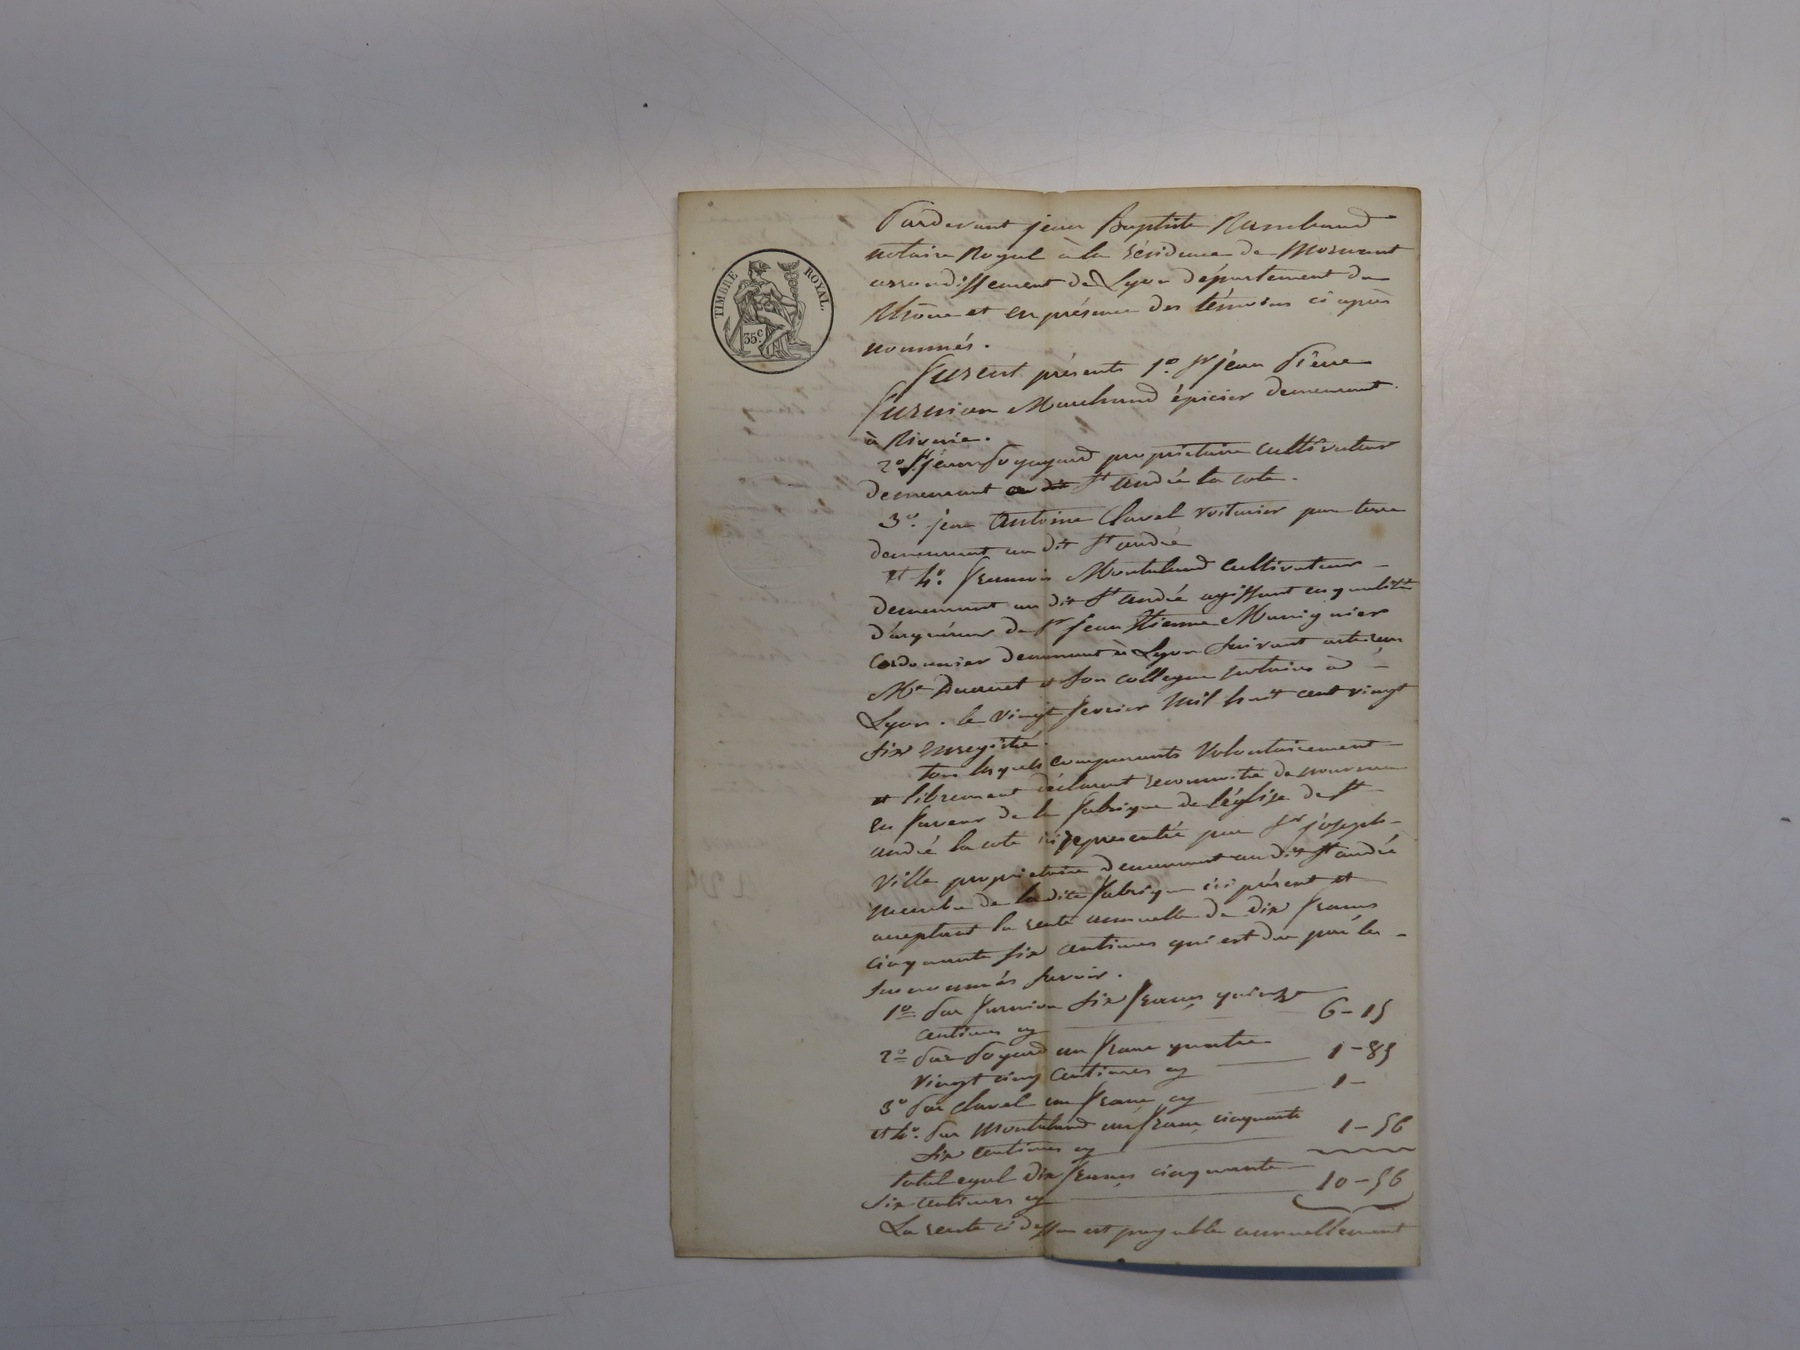 TIMBRE ROYAL
35c.
Pardevant jean Baptiste Rambaud
notaire Royal à la résidence de Mornant
arrondissement de Lyon département du
Rhône et en présence des témoins ci après
nommés.
furent présents 1º. Sr jean Pierre
furnion Marchand épicier demeurant
à Riverie.
2º Sr jean propriétaire cultivateur
demeurant au dit St andré la cote.
3º. jean Antoine Clavel voiturier par terre
demeurant au dit St andré
et 4º. francois Montaland cultivateur
demeurant au dit St andré agissant en qualité
d'acquéreur de Sr jean Etienne
Cordonnier demeurant à Lyon suivant acte reçu
Me et son collegue notaires à
Lyon. le vingt fevrier mil huit cent vingt
six enregistré.
tous lesquels comparants volontairement
et librement déclarent reconnoitre de nouveau
en faveur de la fabrique de l'église de St
andré la cote ici représentée par Sr joseph
Ville propriétaire demeurant au dit St andré
membre de la dite fabrique ici présent et
acceptant la rente annuelle de dix francs
cinquante six centimes qui est due par les
sus nommés savoir.
1º par furnion six francs quinze
centimes cy 6-15
2º par un franc quatre
vingt cinq centimes cy 1-85
3º par Clavel un franc cy 1-
et 4º. par Montaland un franc cinquante
six centimes cy 1-56
total egal dix francs cinquante
six centimes cy 10-56
La rente ci dessus est payable annuellement